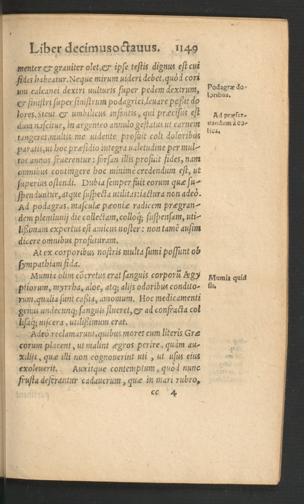 Liber decimusoctauus. 1149
menter & grauiter olet, & ipse testis dignus est cui
fides habeatur. Neque mirum uideri debet, quòd cori
um calcanei dextri uulturis super pedem dextrum,
& sinistri super sinistrum podagrici, leuare possit do
lores. Sicut & umbilicus infantis, qui præcisus est
dum nascitur, in argenteo annulo gestatus ut carnem
tangeret, multis me uidente profuit coli doloribus
paratis, ut hoc præsidio integra ualetudine per mul-
tos annos fruerentur: forsan illis profuit fides, nam
omnibus contingere hoc minimè credendum est, ut
superius ostendi. Dubia semper fuit eorum quæ su-
spenduntur, atque suspecta utilitas: tactura non adeò.
Ad podagras, masculæ pæoniæ radicem prægran-
dem plenilunij die collectam, colloq; suspensam, uti-
lissimam expertus est amicus noster: non tamē ausim
dicere omnibus profuturam.
At ex corporibus nostris multa sumi possunt ob
sympathiam fida.
Mumia olim cōcretus erat sanguis corporū Aegy
ptiorum, myrrha, aloë, atq; alijs odoribus condito-
rum, qualia sunt casia, amomum. Hoc medicamenti
genus undecunq; sanguis flueret, & ad confracta col
lisáq; uiscera, utilissimum erat.
Adeò reclamarunt, quibus moret cum literis Græ
corum placent, ut malint ægros perire, quàm au-
xilijs, quæ illi non cognouerint uti, ut usus eius
exoleuerit. Auxitque contemptum, quòd nunc
frusta deferantur cadauerum, quæ in mari rubro,
cc 4
Podagræ do-
loribus.
Ad præser-
uandum à co-
lica.
Mumia quid
sit.